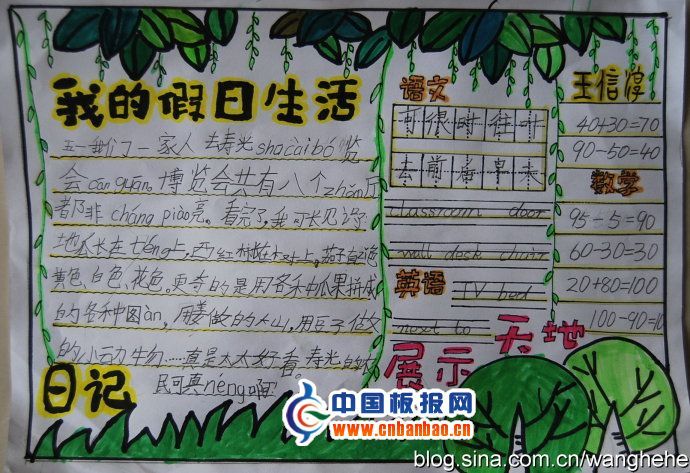 我的假日生活
五一我们一家人去寿光shucaibó览
会cānguān,博览会共有八个zhǎn厅
都非cháng piào亮。看完了,我可长见识了
地瓜长在téng上,西红柿长在
黄色、白色、花色。更奇的是用各种瓜果拼成
的各种图àn,用姜做的大山,用豆子做
的小动物……真是太太好看。寿光的农
民可真néng啊
日记
语文
可很时往叶
去前后早来
classroom door
wall desk chair
英语
TV bed
next to
展示天地
王信淳
40+30=70
90-50=40
数学
95-5=90
60-30=30
20+80=100
100-90=10
中国板报网
www.cnbanbao.cn
blog.sina.com.cn/wanghehe